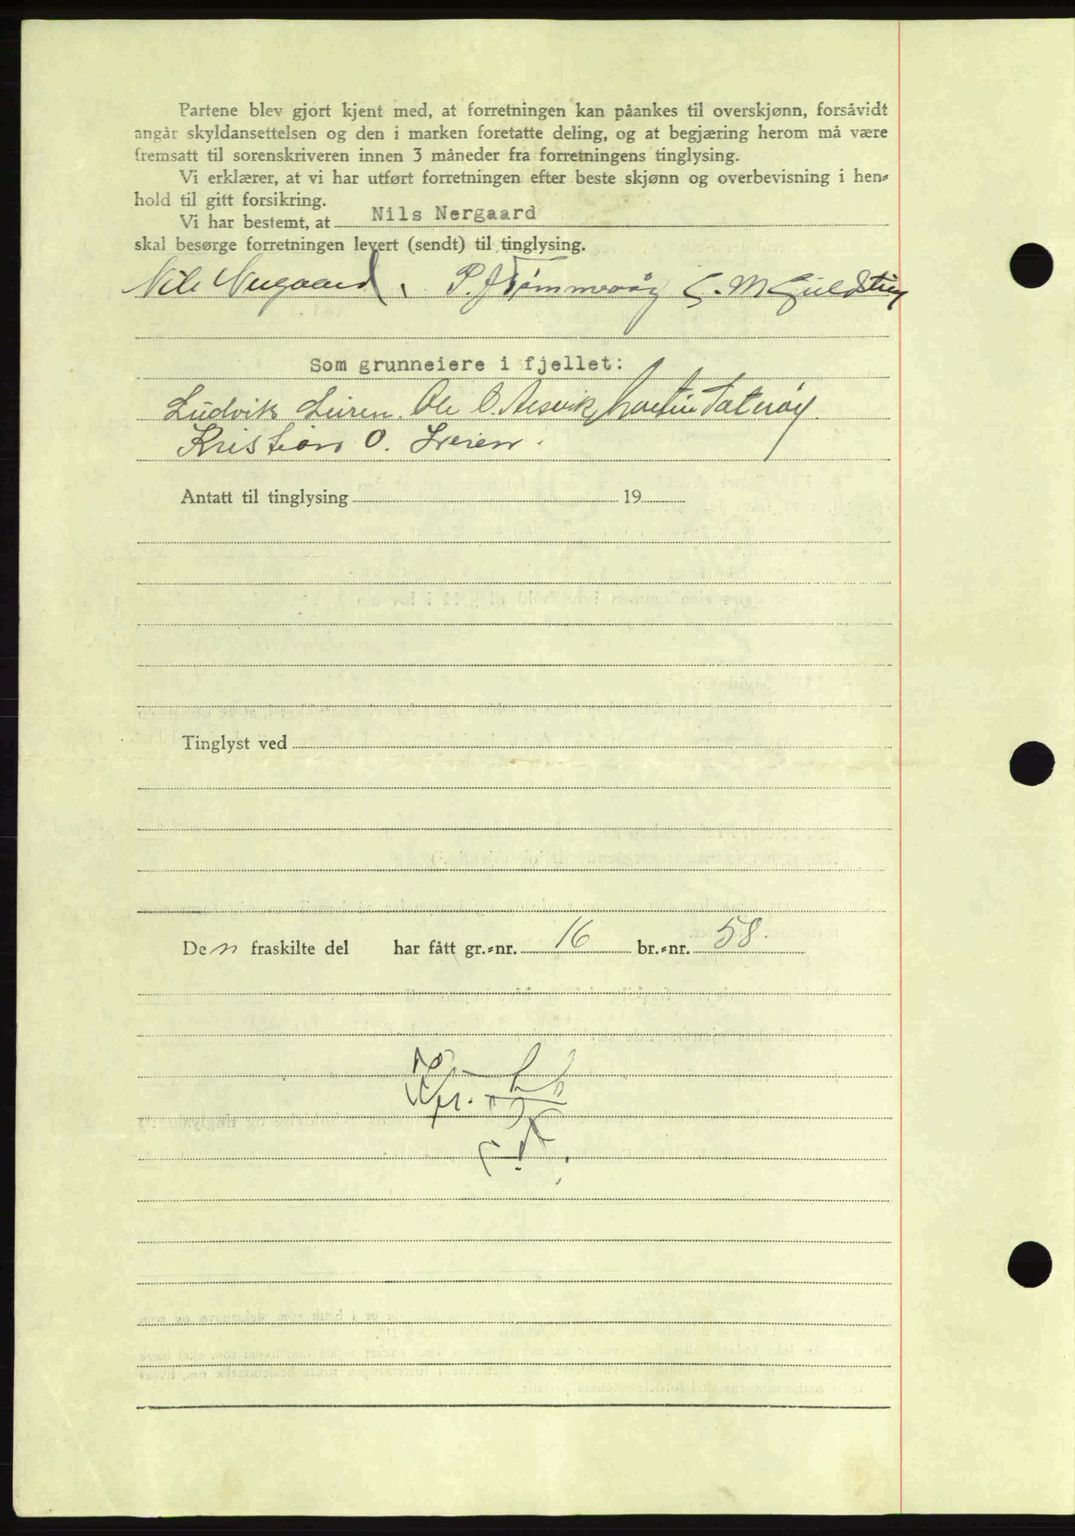 Partene blev gjort kjent med, at forretningen kan påankes til overskjønn, forsåvidt
angår skyldansettelsen og den i marken foretatte deling, og at begjæring herom må være
fremsatt til sorenskriveren innen 3 måneder fra forretningens tinglysing.
Vi erklærer, at vi har utført forretningen efter beste skjønn og overbevisning i hen-
hold til gitt forsikring.
Vi har bestemt, at Nils Nergaard
skal besørge forretningen levert (sendt) til tinglysing.
Nils Nergaard, P. J. Tømmervåg
Som grunneiere i fjellet:
Ludvik Leiren. Ole O. Martin
Kristian O. Leiren.
Antatt til tinglysing 19
Tinglyst ved
Den fraskilte del har fått gr.-nr. 16 br.-nr. 58.